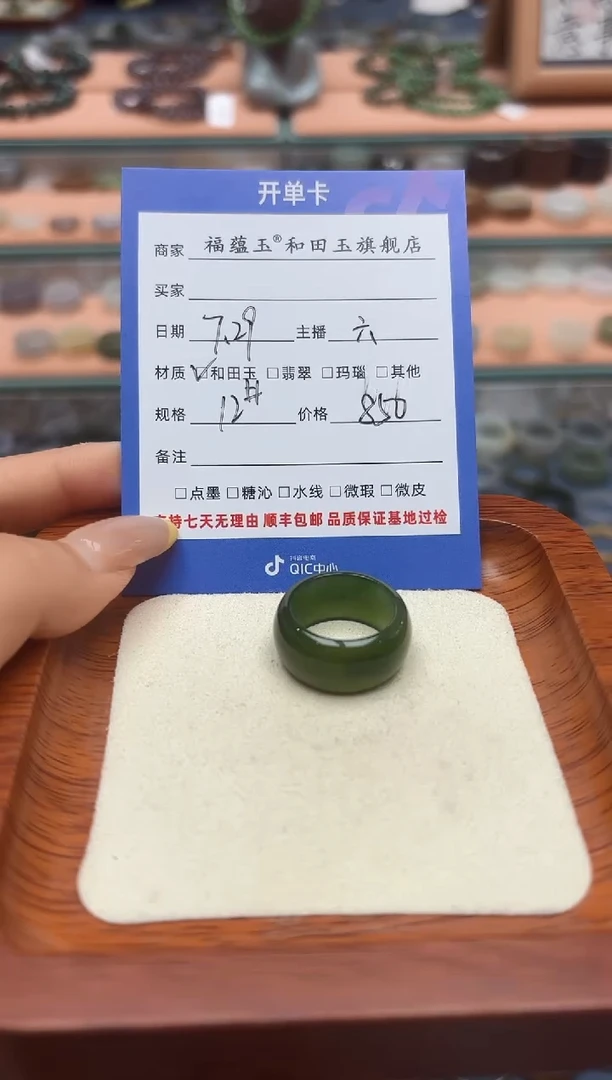 开单卡
商家 福蕴玉®和田玉旗舰店
买家
日期 7.29 主播 六
材质 ☑和田玉 □翡翠 □玛瑙 □其他
规格 12# 价格 850
备注
□点墨 □糖沁 □水线 □微瑕 □微皮
支持七天无理由 顺丰包邮 品质保证基地过检
抖音电商
QIC中心